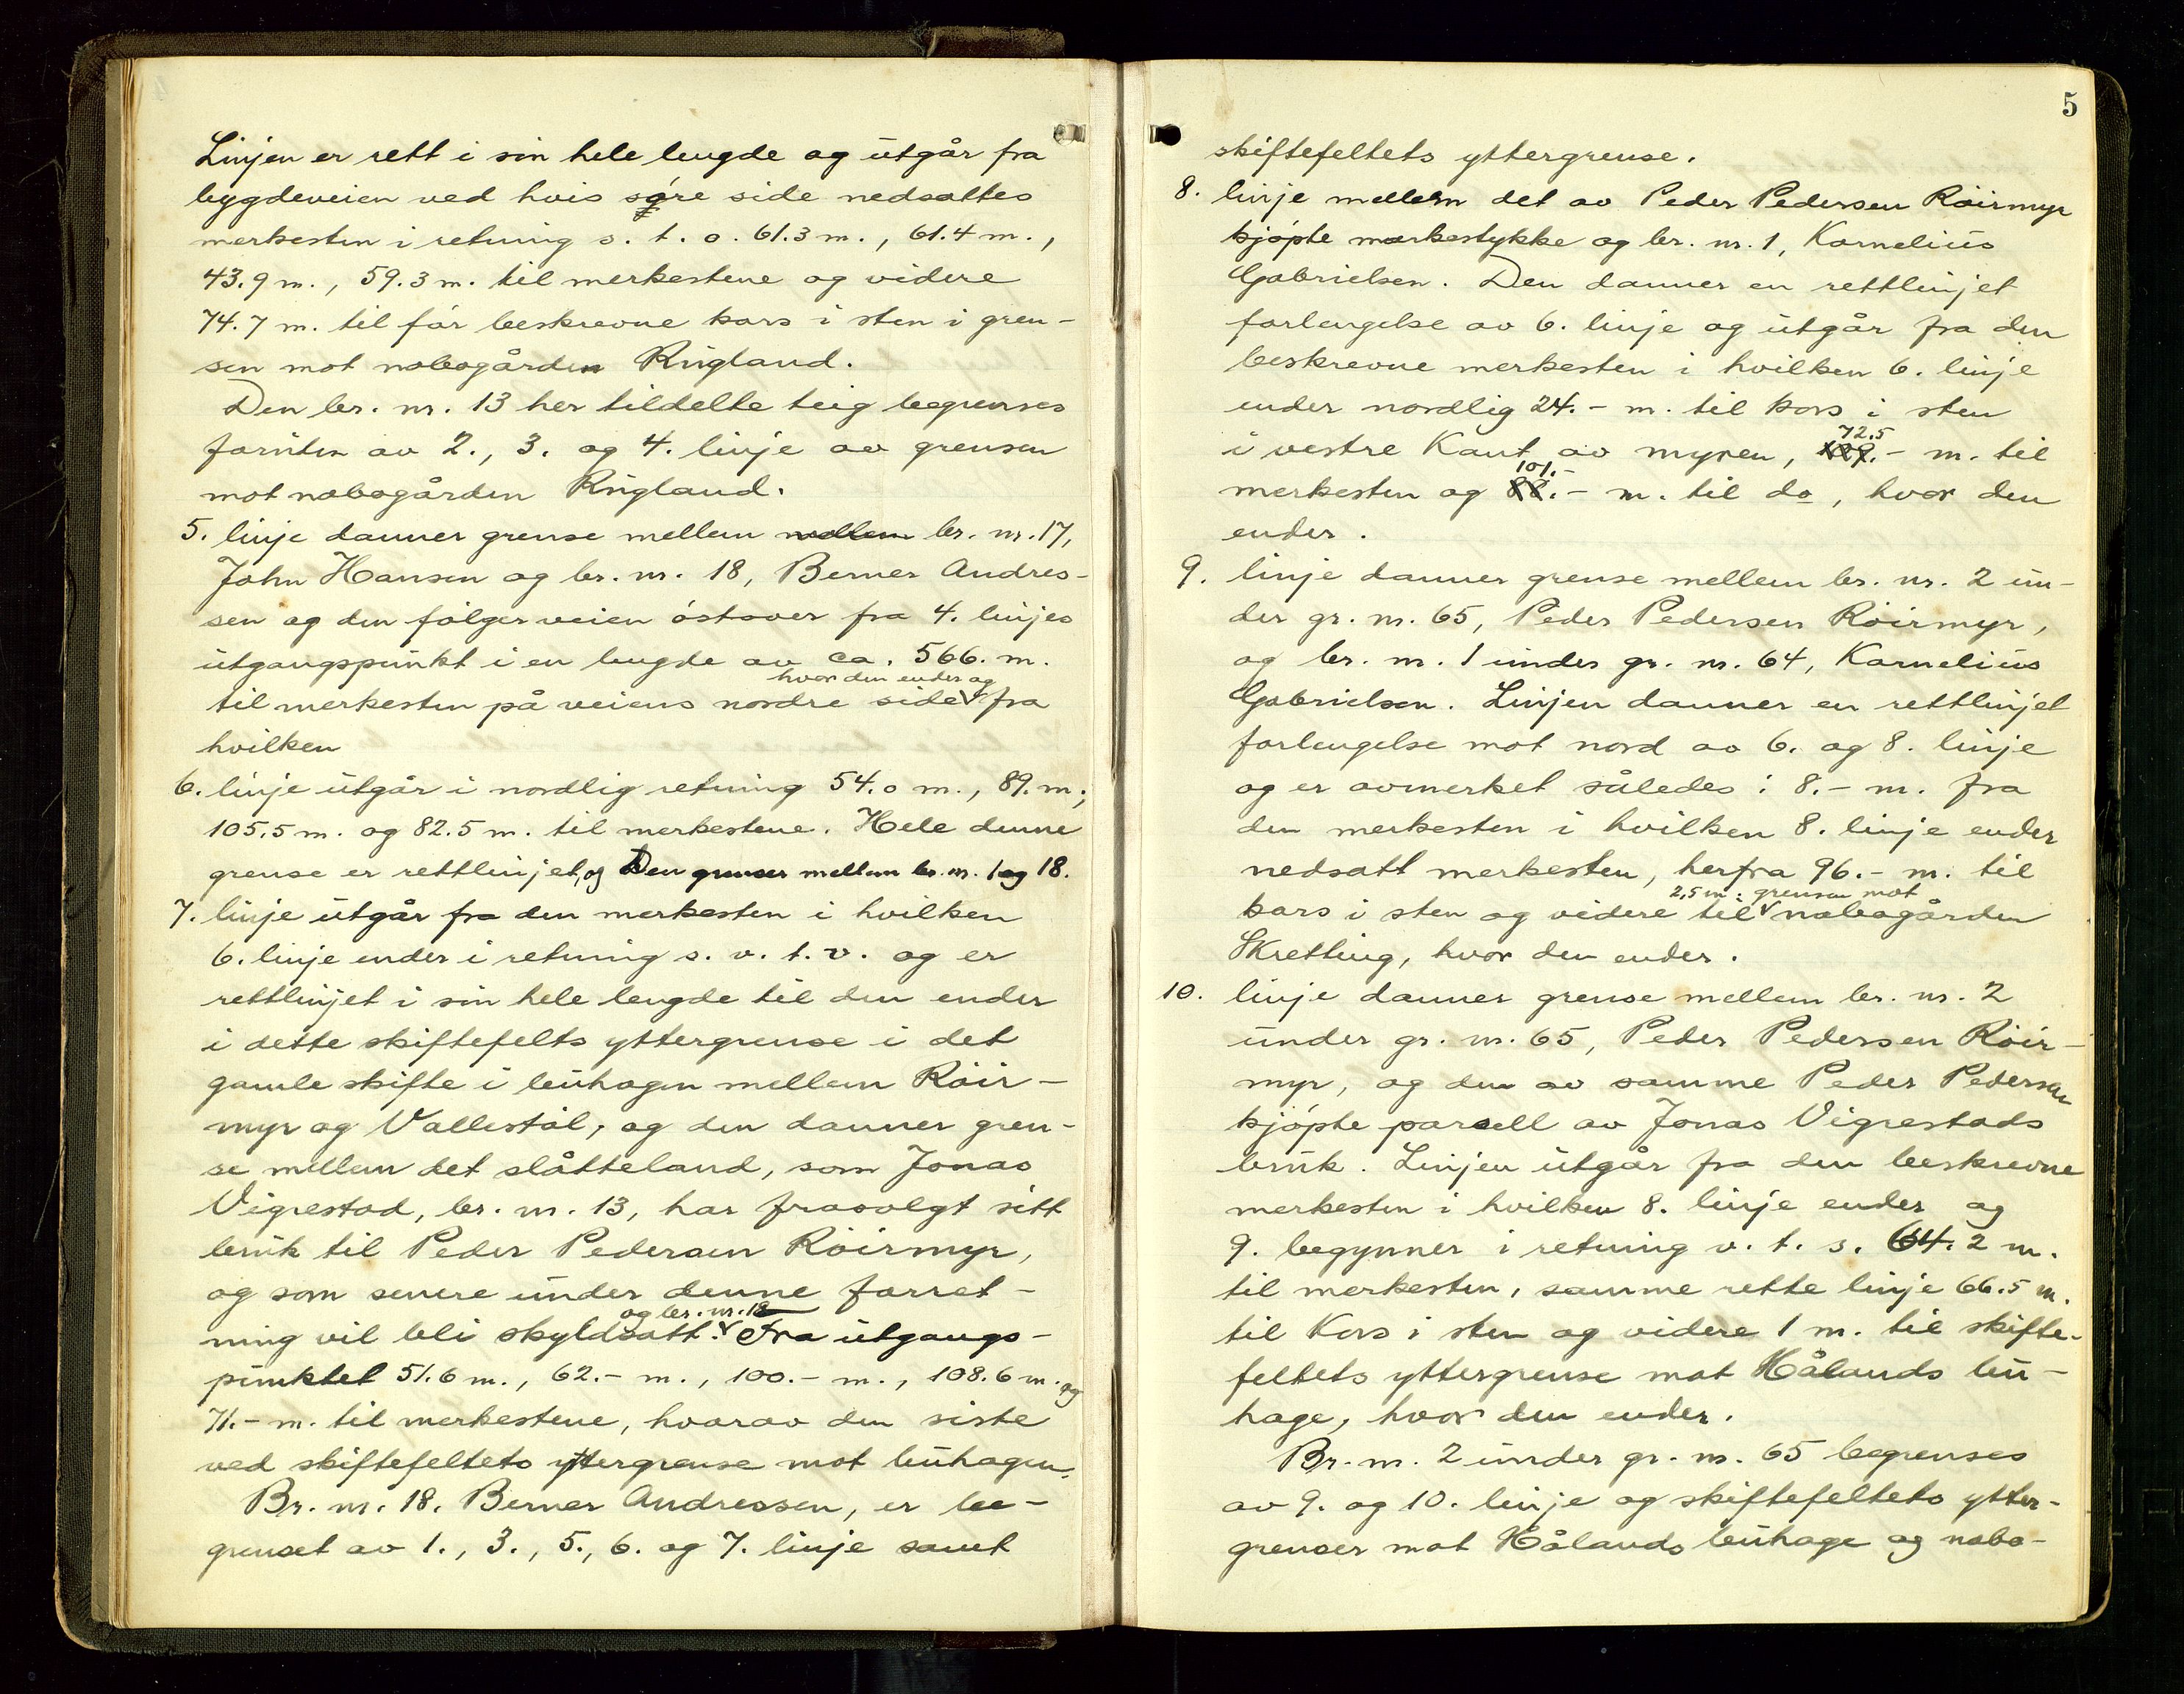 Linjen er rett i sin hele lengde og utgår fra
bygdeveien ved hvis søre side nedsattes
merkesten i retning s. t. o. 61.3 m., 61.4 m.,
43.9 m., 59.3 m. til merkestene og videre
74.7 m. til før beskrevne kors i sten i gren-
sen mot nabogården Ringland.
Den br. nr. 13 her tildelte teig begrenses
foruten av 2., 3. og 4. linje av grensen
mot nabogården Ringland.
5. linje danner grense mellem mellem br. nr. 17,
John Hansen og br. nr. 18, Berner Andres-
sen og den følger veien østover fra 4. linjes
utgangspunkt i en lengde av ca. 566. m.
hvor den ender og
til merkesten på veiens nordre side fra
hvilken
6. linje utgår i nordlig retning 54.0 m., 89. m.,
105.5 m. og 82.5 m. til merkestene. Hele denne
grense er rettlinjet, og Den grenser mellem br. nr. 1 og 18.
7. linje utgår fra den merkesten i hvilken
6. linje ender i retning s. v. t. v. og er
rettlinjet i sin hele lengde til den ender
i dette skiftefelts yttergrense i det
gamle skifte i buhagen mellem Röir-
myr og Vallestøl, og den danner gren-
se mellem det slåtteland, som Jonas
Vigrestad, br. nr. 13, har frasolgt sitt
bruk til Peder Pedersen Röirmyr,
og som senere under denne forret-
og br. nr. 18
ning vil bli skyldsatt. Fra utgangs-
punktet 51.6 m., 62.- m., 100.- m., 108.6 m. og
71.- m. til merkestene, hvorav den siste
ved skiftefeltets yttergrense mot buhagen.
Br. nr. 18. Berner Andressen, er be-
grenset av 1., 3., 5., 6. og 7. linje samt
5
skiftefeltets yttergrense.
8. linje mellem det av Peder Pedersen Röirmyr
kjøpte markestykke og br. nr. 1, Kornelius
Gabrielsen. Den danner en rettlinjet
forlengelse av 6. linje og utgår fra den
beskrevne merkesten i hvilken 6. linje
ender nordlig 24.- m. til kors i sten
72.5
i vestre Kant av myren, 109.- m. til
101.-
merkesten og 88.- m. til do, hvor den
ender.
9. linje danner grense mellem br. nr. 2 un-
der gr. nr. 65, Peder Pedersen Röirmyr,
og br. nr. 1 under gr. nr. 64, Kornelius
Gabrielsen. Linjen danner en rettlinjet
forlengelse mot nord av 6. og 8. linje
og er avmerket således: 8.- m. fra
den merkesten i hvilken 8. linje ender
nedsatt merkesten, herfra 96.- m. til
2,5 m. i grensen mot
kors i sten og videre til nabogården
Skretting, hvor den ender.
10. linje danner grense mellem br. nr. 2
under gr. nr. 65, Peder Pedersen Röir-
myr, og den av samme Peder Pedersen
kjøpte parsell av Jonas Vigrestads
bruk. Linjen utgår fra den beskrevne
merkesten i hvilken 8. linje ender og
9. begynner i retning v. t. s. 64.2 m.
til merkesten, samme rette linje 66.5 m.
til Kors i sten og videre 1 m. til skifte-
feltets yttergrense mot Hålands bu-
hage, hvor den ender.
Br. nr. 2 under gr. nr. 65 begrenses
av 9. og 10. linje og skiftefeltets ytter-
grenser mot Hålands buhage og nabo-